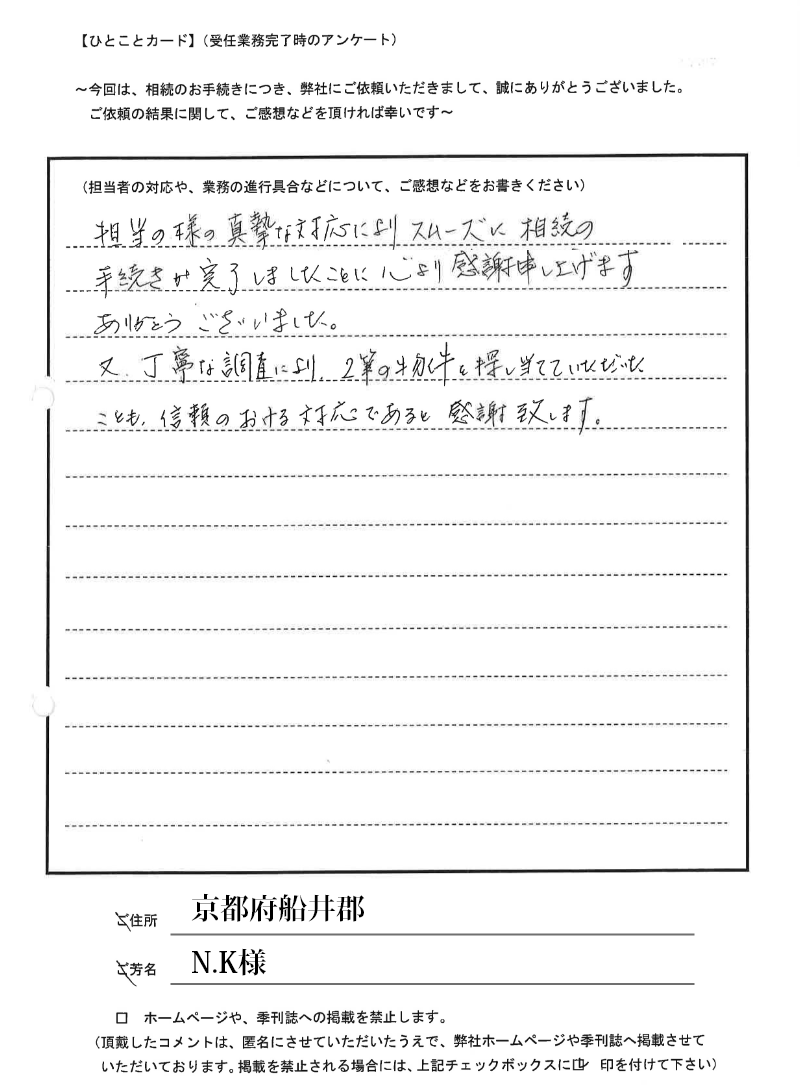 【ひとことカード】（受任業務完了時のアンケート）
～今回は、相続のお手続きにつき、弊社にご依頼いただきまして、誠にありがとうございました。
ご依頼の結果に関して、ご感想などを頂ければ幸いです～
（担当者の対応や、業務の進行具合などについて、ご感想などをお書きください）
担当の様の真摯な対応により スムーズに 相続の
手続きが完了しましたことに 心より感謝申し上げます
ありがとう ございました。
又、丁寧な調査により、2筆の物件を探し当てていただいた
ことも、信頼のおける対応であると 感謝致します。
ご住所 京都府船井郡
ご芳名 N.K様
□ ホームページや、季刊誌への掲載を禁止します。
（頂戴したコメントは、匿名にさせていただいたうえで、弊社ホームページや季刊誌へ掲載させて
いただいております。掲載を禁止される場合には、上記チェックボックスに☑ 印を付けて下さい）